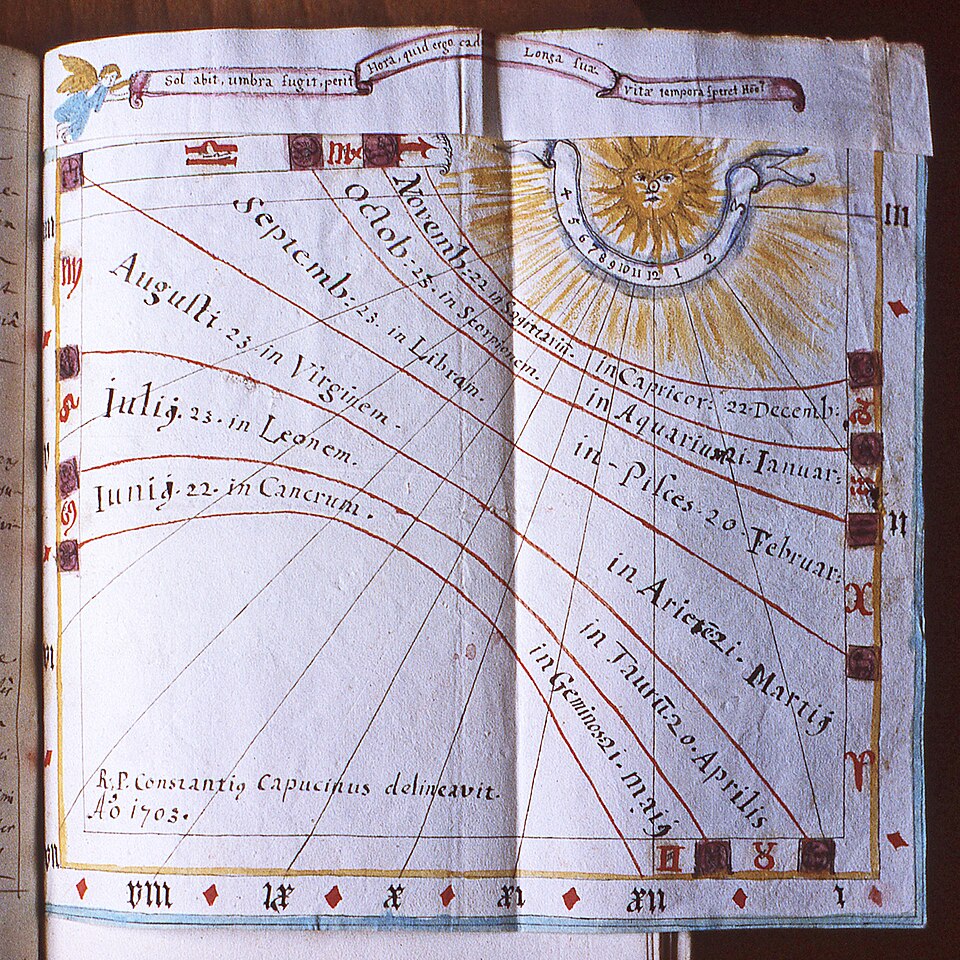 Sol abit, umbra fugit, perit
Hora, quid ergo cad
Longa suæ
vitæ tempora speret Hõo?
4 5 6 7 8 9 10 11 12 1 2 3
Novemb: 22 in Sagittariũ.
Octob: 23. in Skorpionem.
Septemb: 23. in Libram.
Augusti. 23. in Virginem.
Julij. 23. in Leonem.
Junij. 22. in Cancrum.
in Capricor: 22. Decemb:
in Aquarium 21. Januar:
in Pisces. 20. Februar:
in Arietẽ 21. Martij
in Taurũ. 20. Aprilis
in Geminos 21. maij
III
II
R. P. Constantiꝯ Capucinus delineavit.
Aõ 1703.
VIII IX X XI XII I